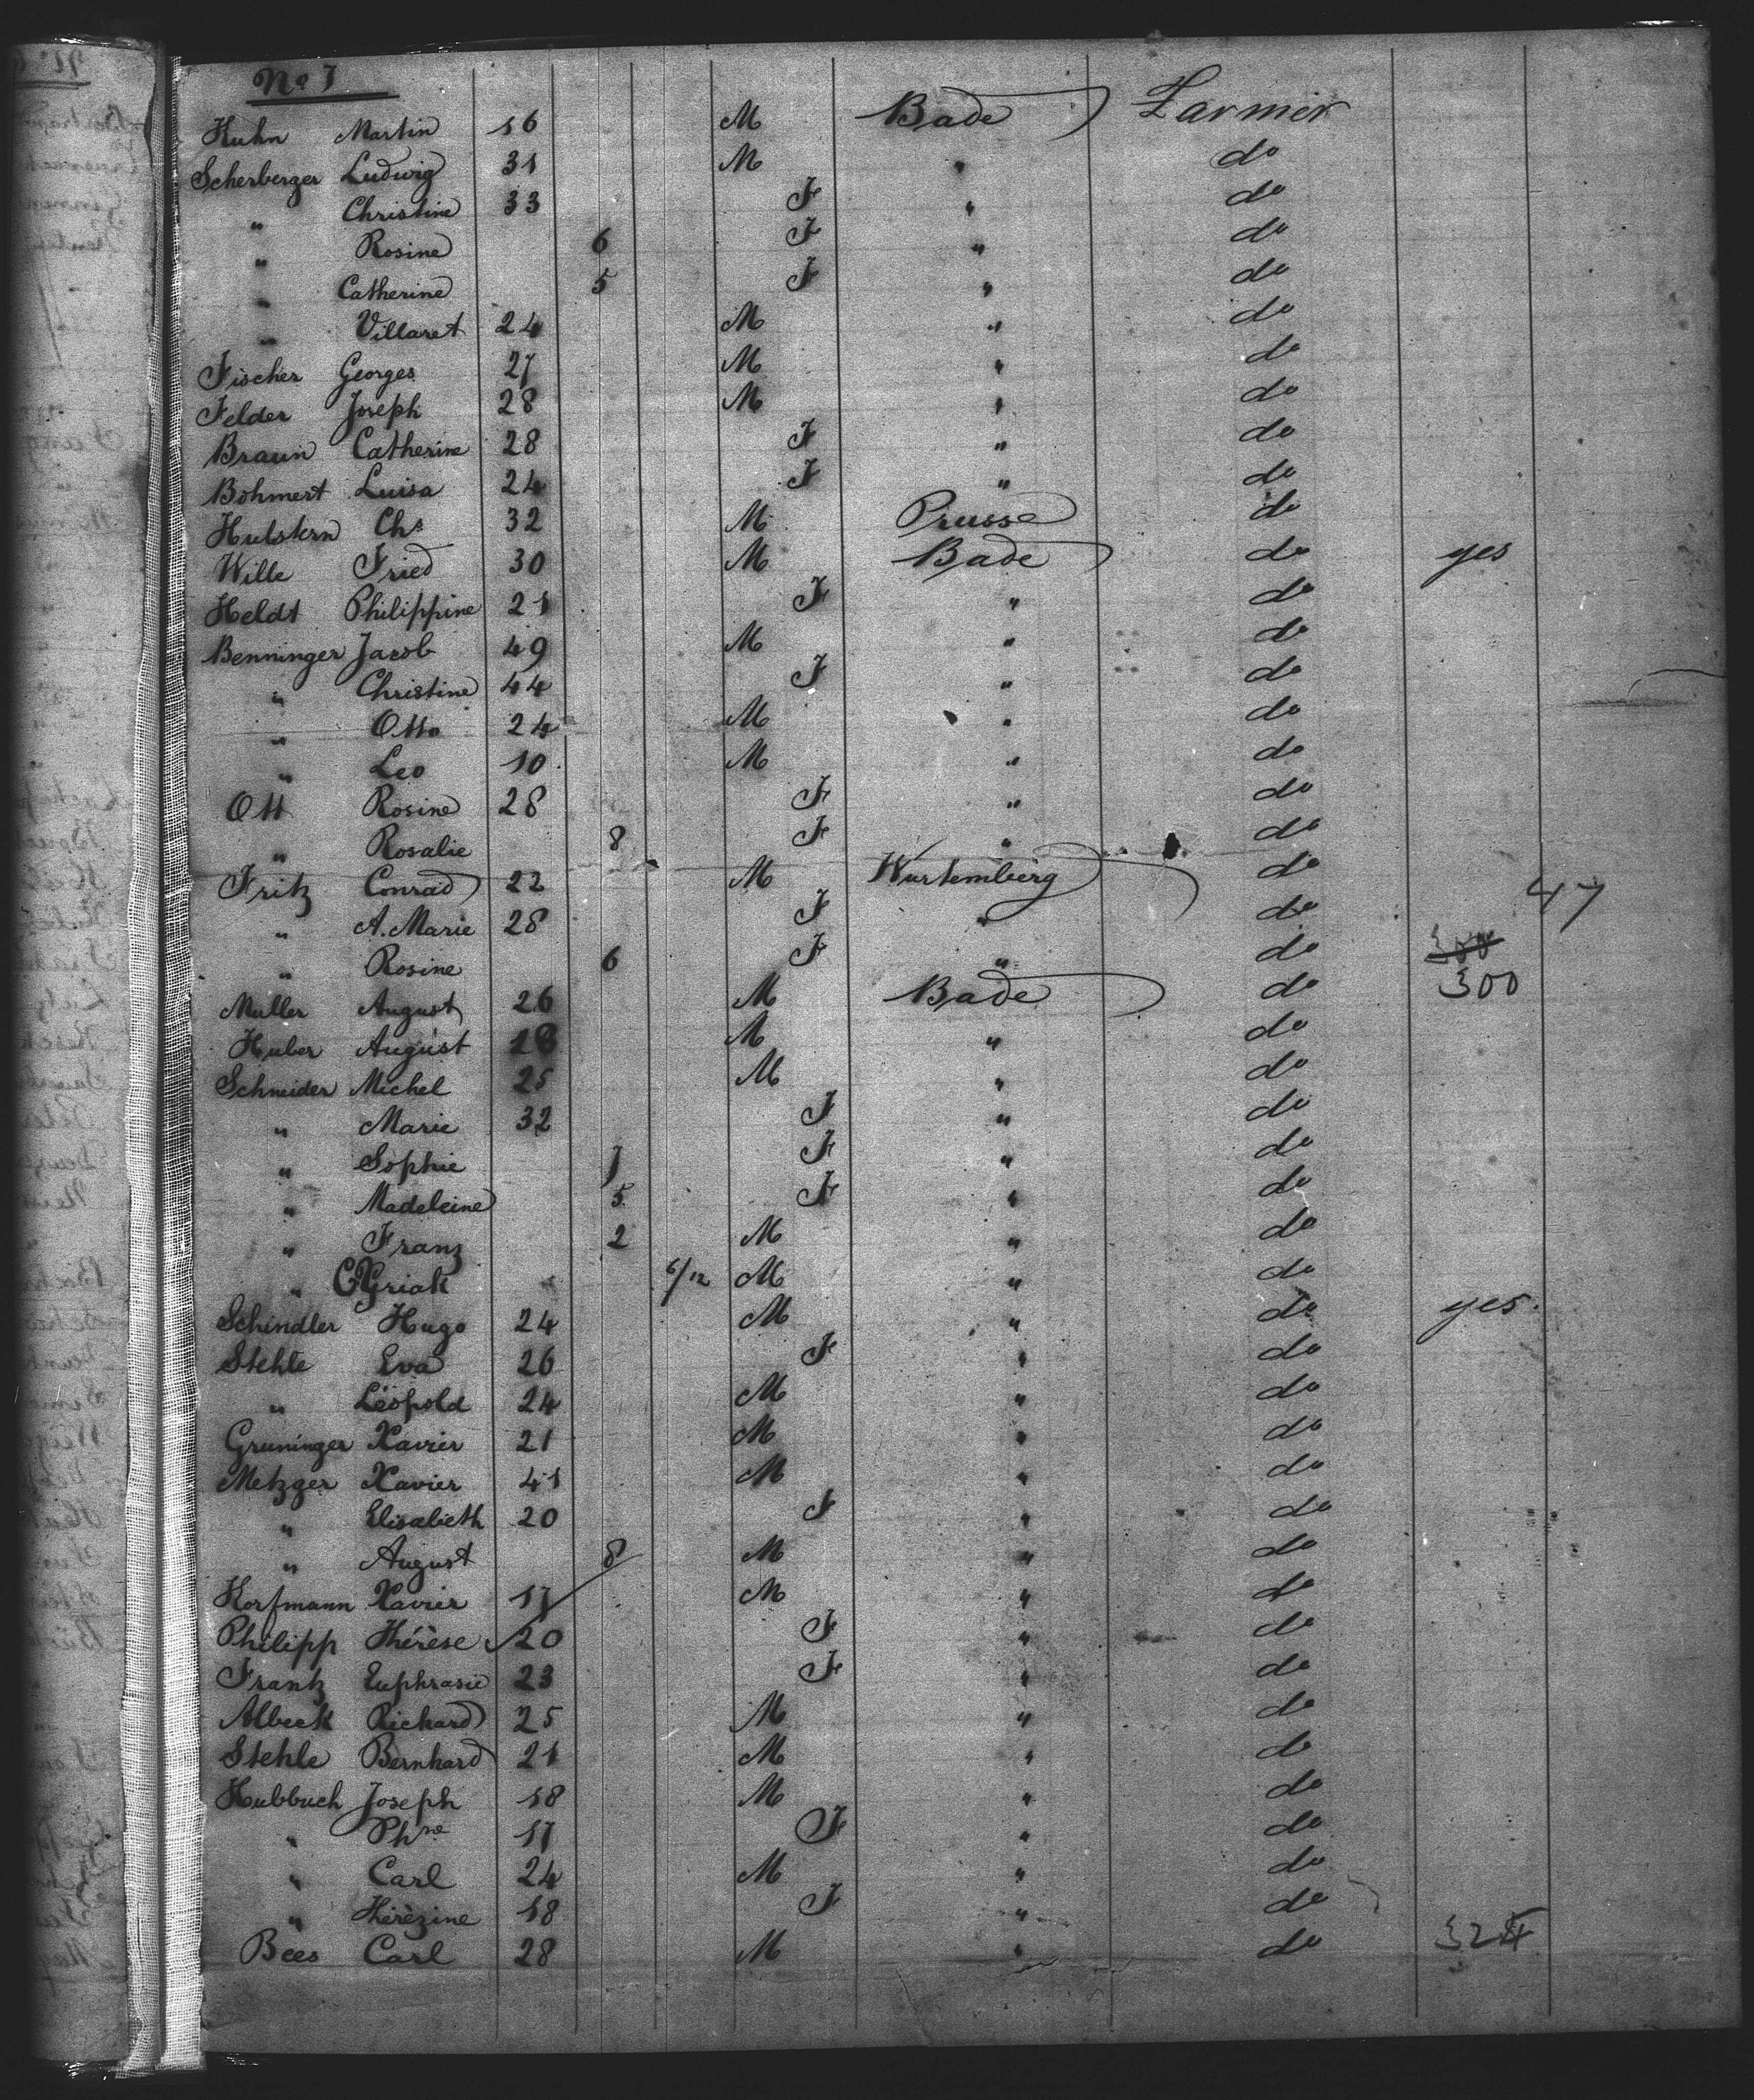 No 7
Kuhn Martin 16 M Bade Farmer
Scherberger Ludwig 31 M " do
" Christine 33 F " do
" Rosine 6 F " do
" Catherine 5 F " do
" Villaret 24 M " do
Fischer Georges 27 M " do
Felder Joseph 28 M " do
Braun Catherine 28 F " do
Böhmert Luisa 24 F " do
Hulstern Chs 32 M Prusse do
Wille Fried 30 M Bade do yes
Heldt Philippine 21 F " do
Benninger Jacob 49 M " do
" Christine 44 F " do
" Otto 24 M " do
" Leo 10 M " do
Ott Rosine 28 F " do
" Rosalie 8 F " do
Fritz Conrad 22 M Wurtemberg do 47
" A. Marie 28 F " do
" Rosine 6 F " do 300
Muller August 26 M Bade do 300
Huber August 18 M " do
Schneider Michel 25 M " do
" Marie 32 F " do
" Sophie 7 F " do
" Madeleine 5 F " do
" Franz 2 M " do
" Cyriak 6/12 M " do
Schindler Hugo 24 M " do yes.
Stehle Eva 26 F " do
" Léopold 24 M " do
Gruninger Xavier 21 M " do
Metzger Xavier 41 M " do
" Elisabeth 20 F " do
" August 8 M " do
Korfmann Xavier 17 M " do
Philipp Thérèse 20 F " do
Frantz Euphrasie 23 F " do
Albeck Richard 25 M " do
Stehle Bernhard 21 M " do
Hubbuch Joseph 18 M " do
" Phne 17 F " do
" Carl 24 M " do
" Thérèzine 18 F " do
Bees Carl 28 M " do